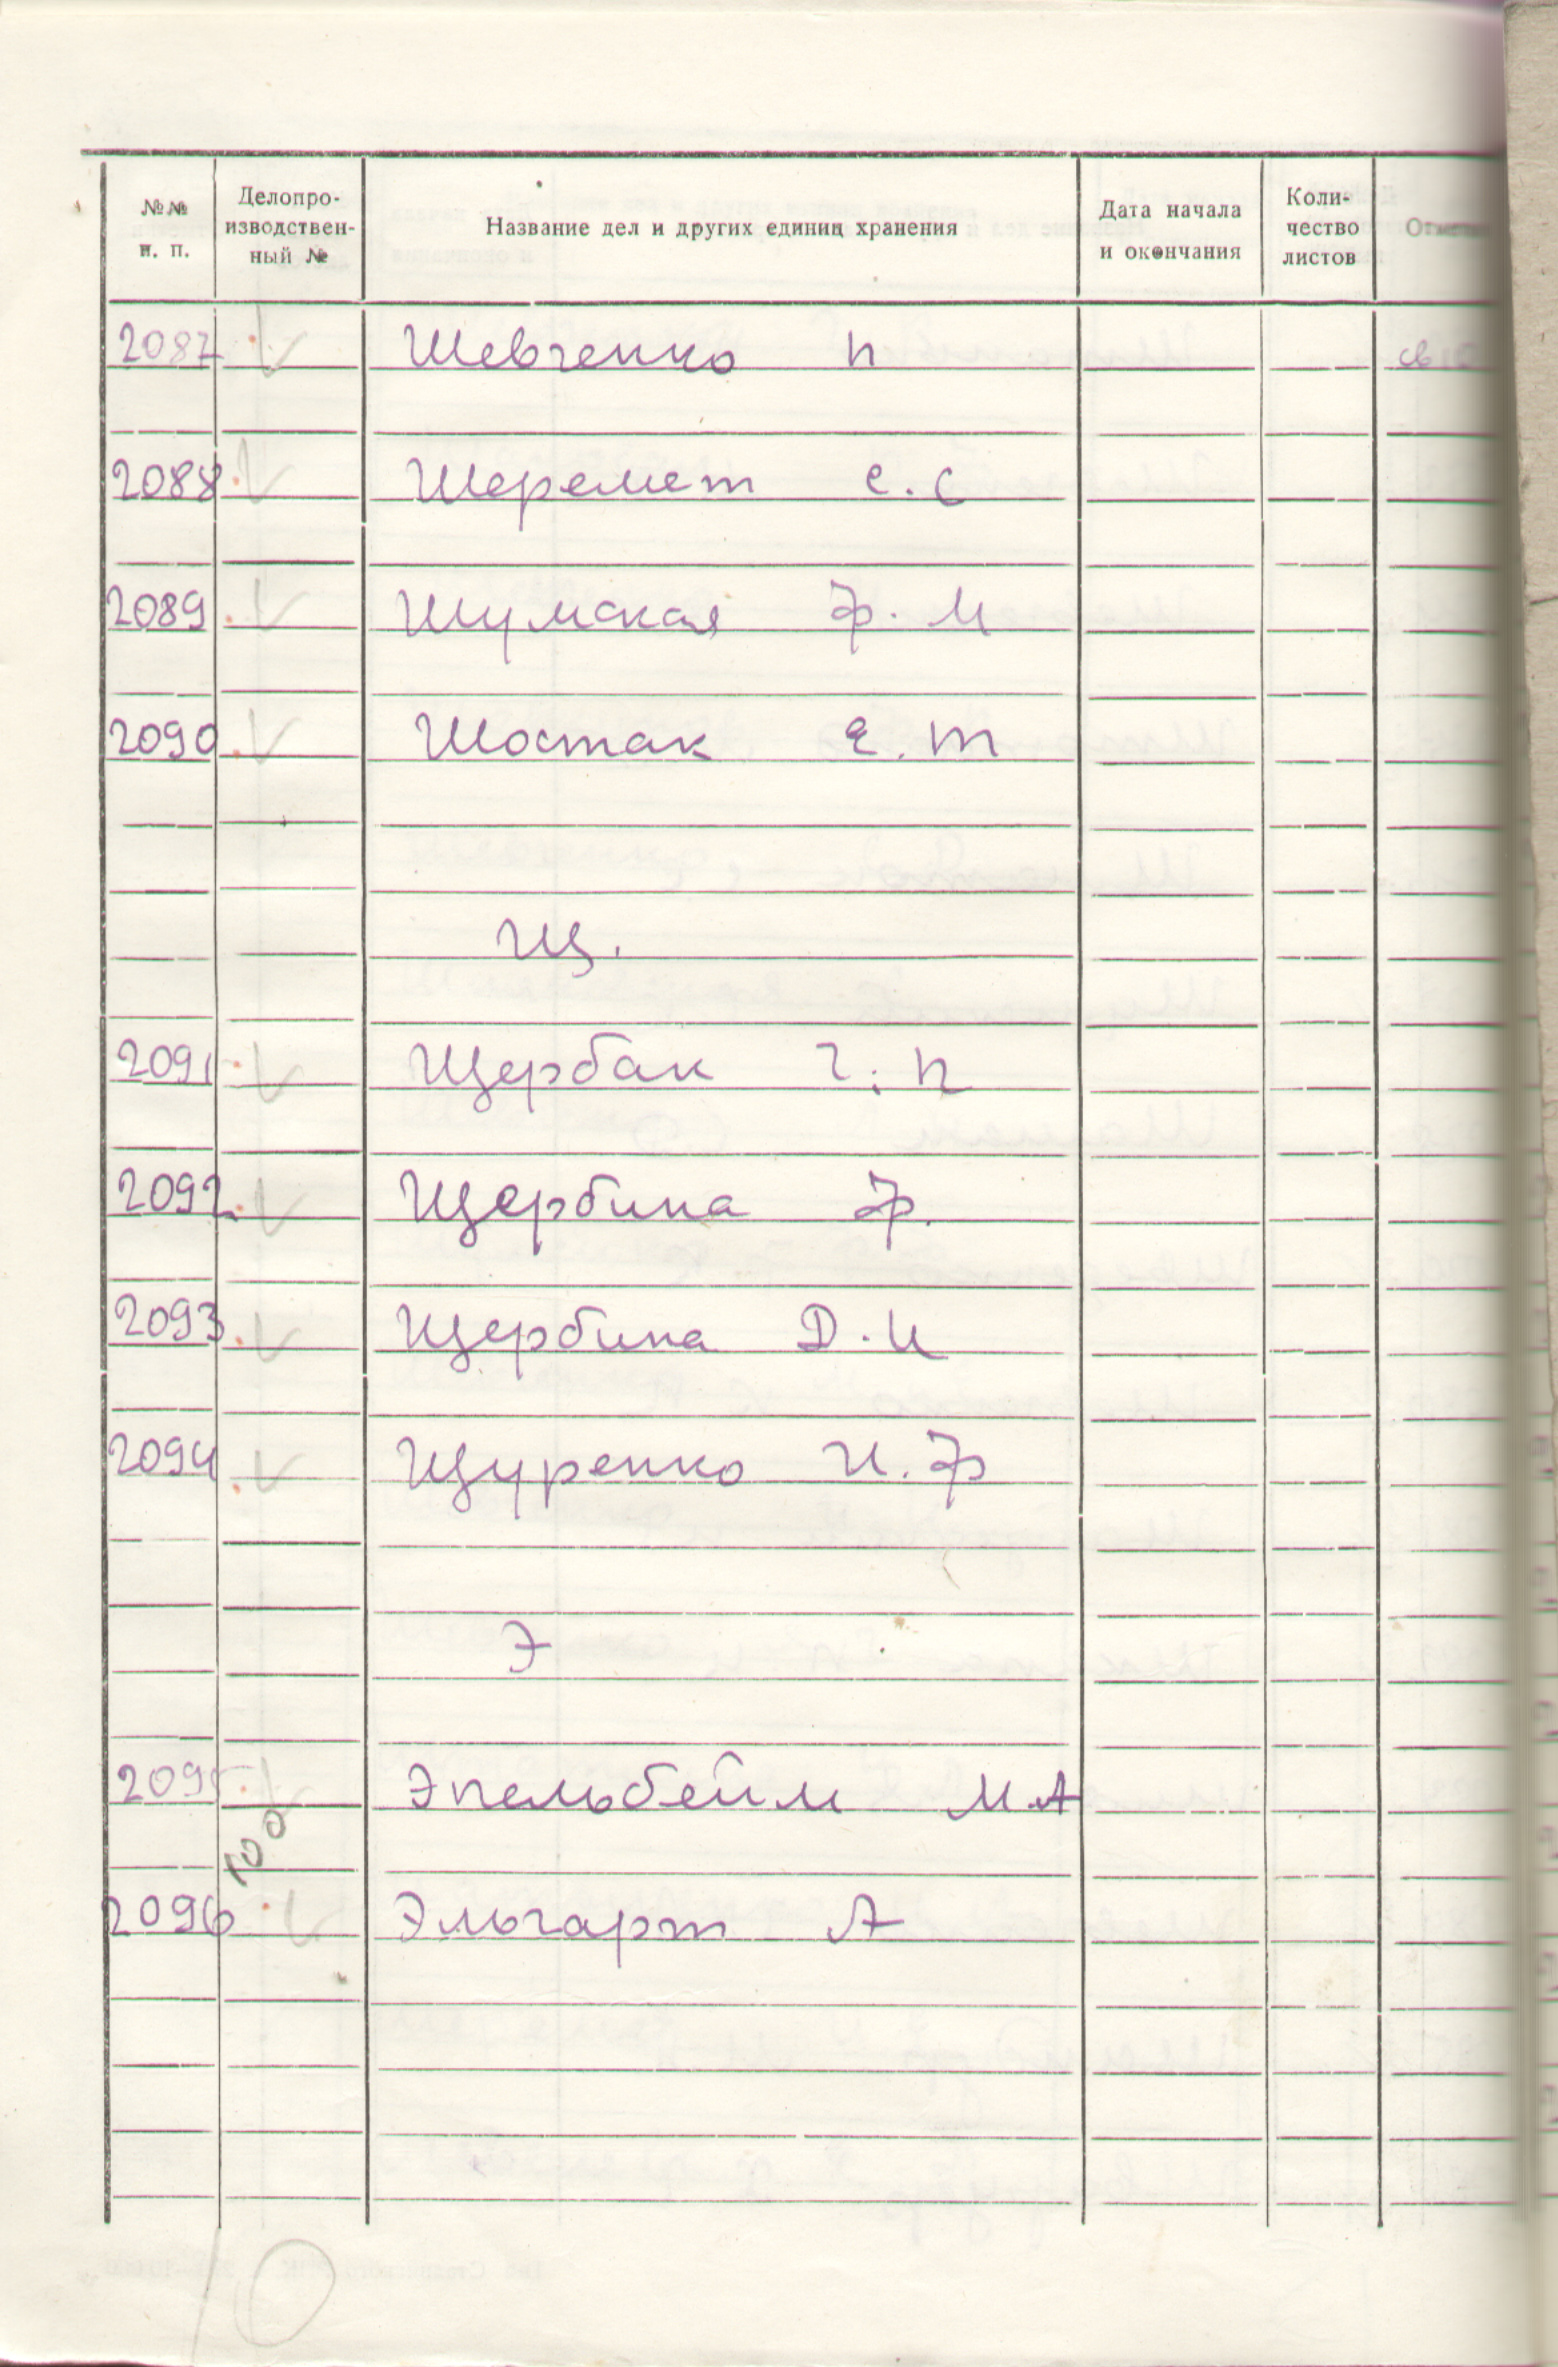 №№ п. п. Делопро-изводствен-ный № Название дел и других единиц хранения Дата начала и окончания Коли-чество листов
2087 Шевченко П
2088 Шеремет Е.С
2089 Шумская Ф. М
2090 Шостак Е. Т
Щ.
2091 Щербак Г. П
2092 Щербина Ф.
2093 Щербина Д. И
2094 Щуренко И. Ф
Э
2095 Эпельбейм М.А
100
2096 Эльгарт А
10